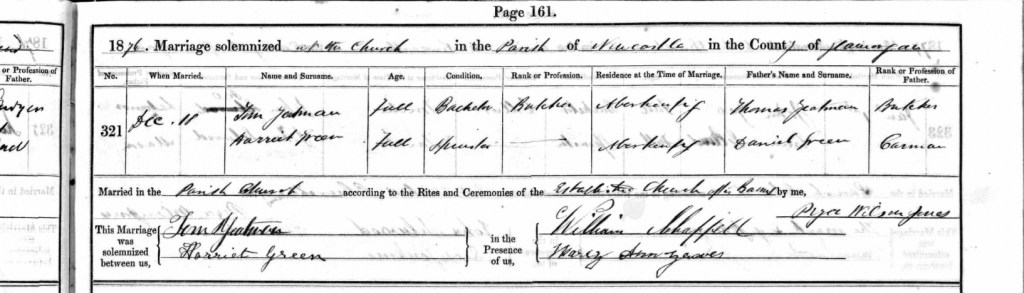 Page 161.
1876. Marriage solemnized at the Church in the Parish of Newcastle in the County of Glamorgan
No. When Married. Name and Surname. Age. Condition. Rank or Profession. Residence at the Time of Marriage. Father's Name and Surname. Rank or Profession of Father.
321 Dec. Tom Yeatman Full Bachelor Butcher Aberkenfig Thomas Yeatman Butcher
Harriet Green Full Spinster Aberkenfig Daniel Green Carman
Married in the Parish Church according to the Rites and Ceremonies of the Established Church after Banns by me,
Wilson Jones
This Marriage was solemnized between us, Tom Yeatman in the Presence of us, William Chappell
Harriet Green
or Profession of Father.